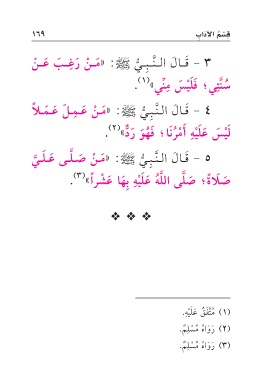 قِسْمُ الآدَابِ ١٦٩
٣ - قَالَ النَّبِيُّ ﷺ: «مَنْ رَغِبَ عَنْ
سُنَّتِي؛ فَلَيْسَ مِنِّي»(١).
٤ - قَالَ النَّبِيُّ ﷺ: «مَنْ عَمِلَ عَمَلاً
لَيْسَ عَلَيْهِ أَمْرُنَا؛ فَهُوَ رَدٌّ»(٢).
٥ - قَالَ النَّبِيُّ ﷺ: «مَنْ صَلَّى عَلَيَّ
صَلَاةً؛ صَلَّى اللَّهُ عَلَيْهِ بِهَا عَشْراً»(٣).
(١) مُتَّفَقٌ عَلَيْهِ.
(٢) رَوَاهُ مُسْلِمٌ.
(٣) رَوَاهُ مُسْلِمٌ.